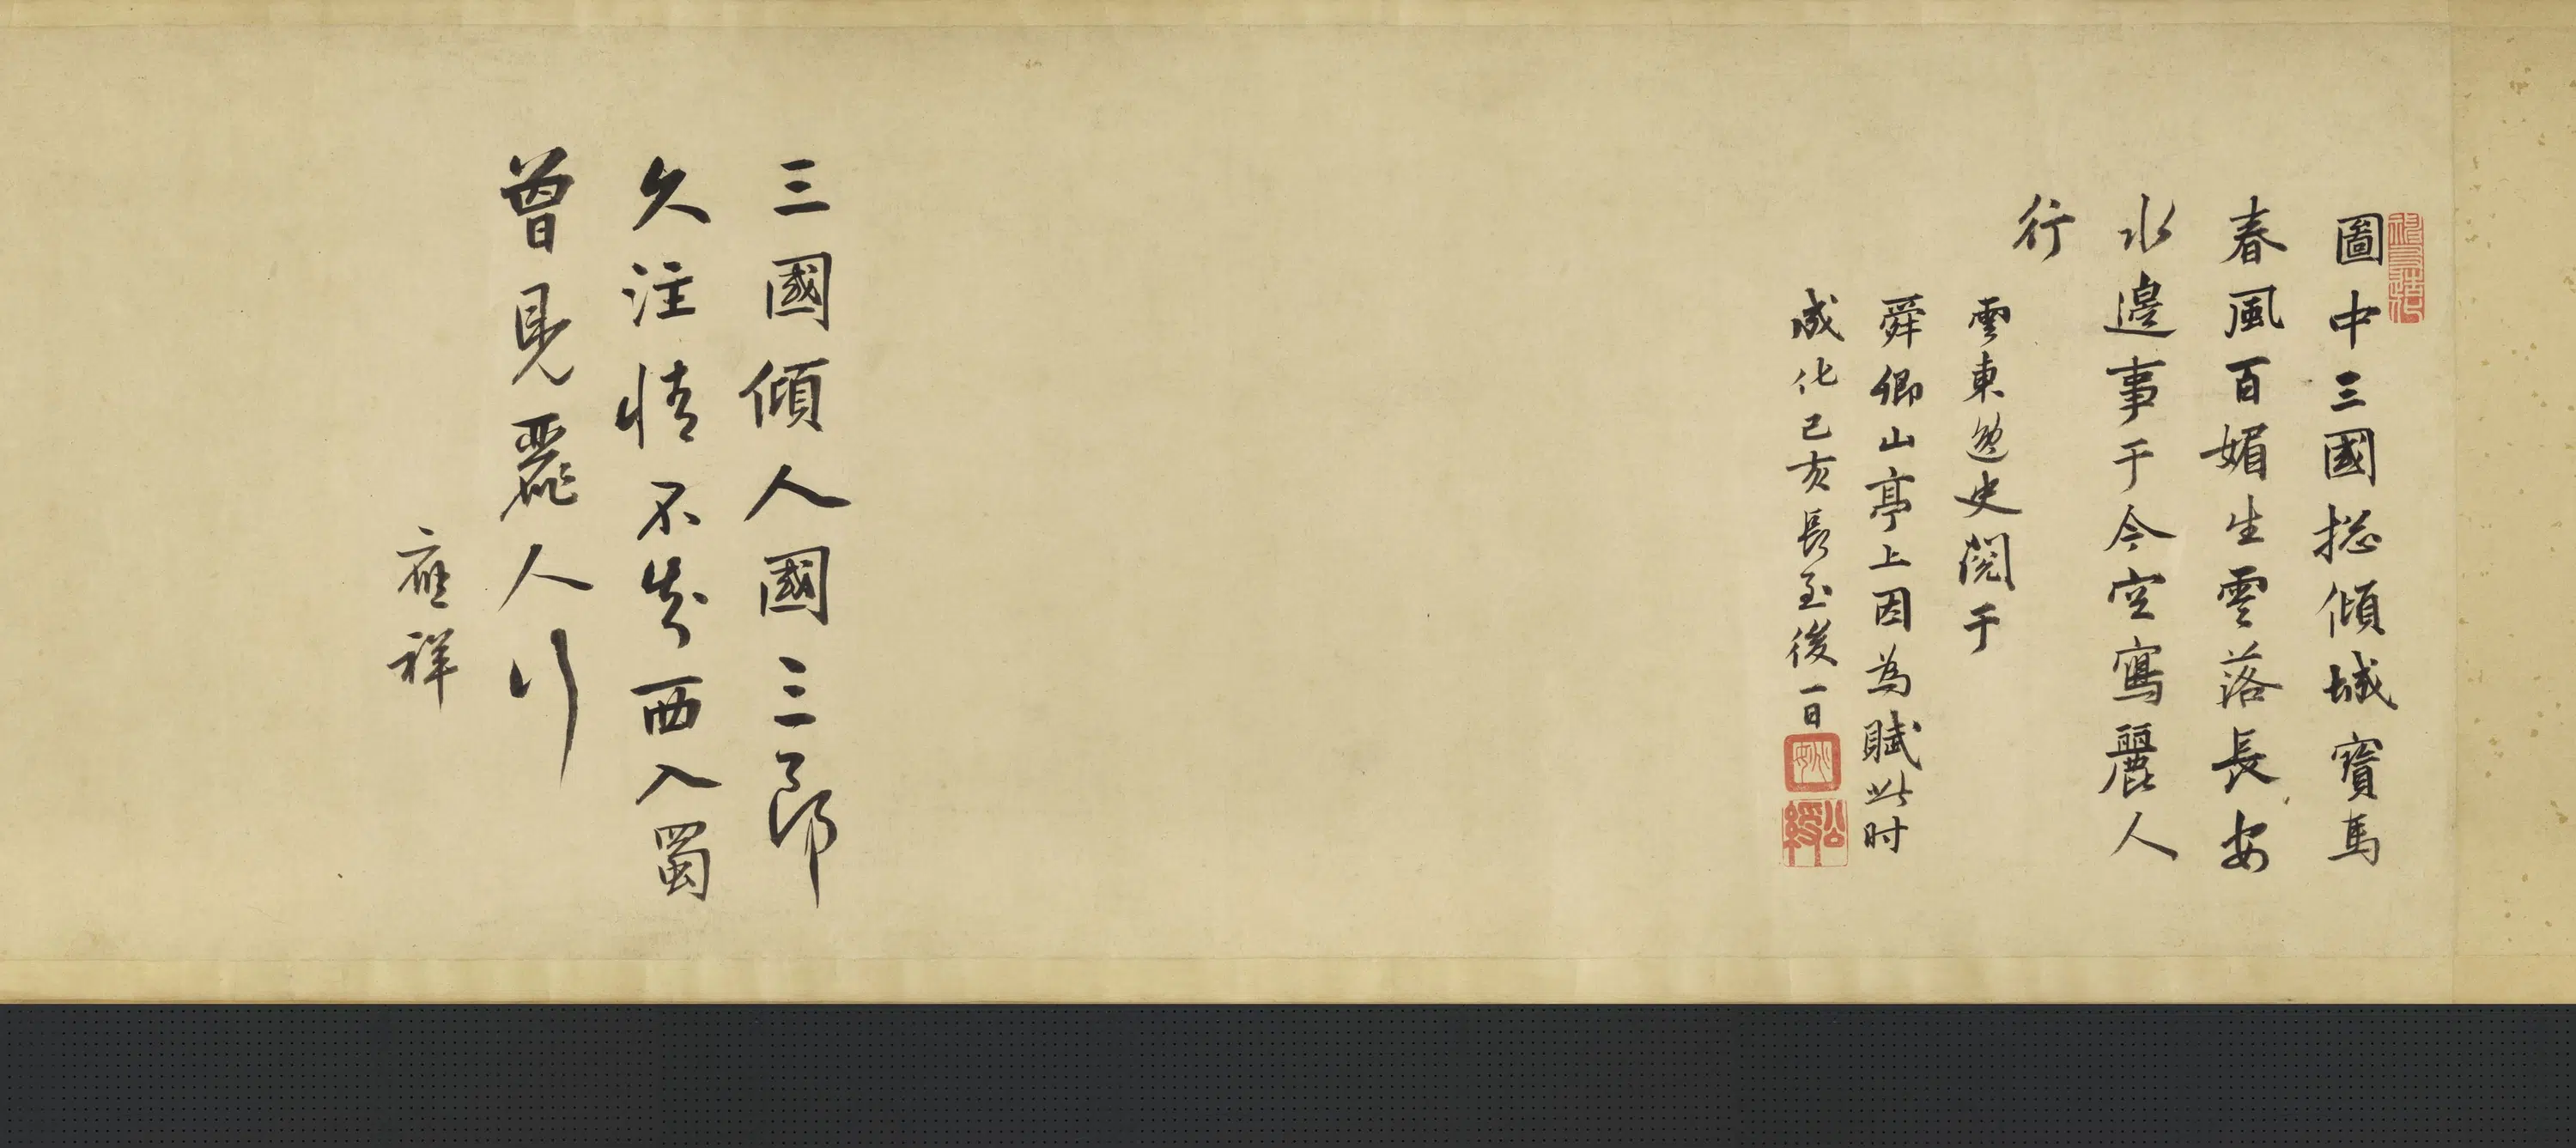 圖中三國捴傾城寶馬
春風百媚生雲落長安
水邊事于今空寫麗人
行
雲東逸史閱于
舜卿山亭上因為賦此时
成化己亥長至後一日
三國傾人國三郎
久注情不、西入蜀
曾見麗人行
應祥
公綬